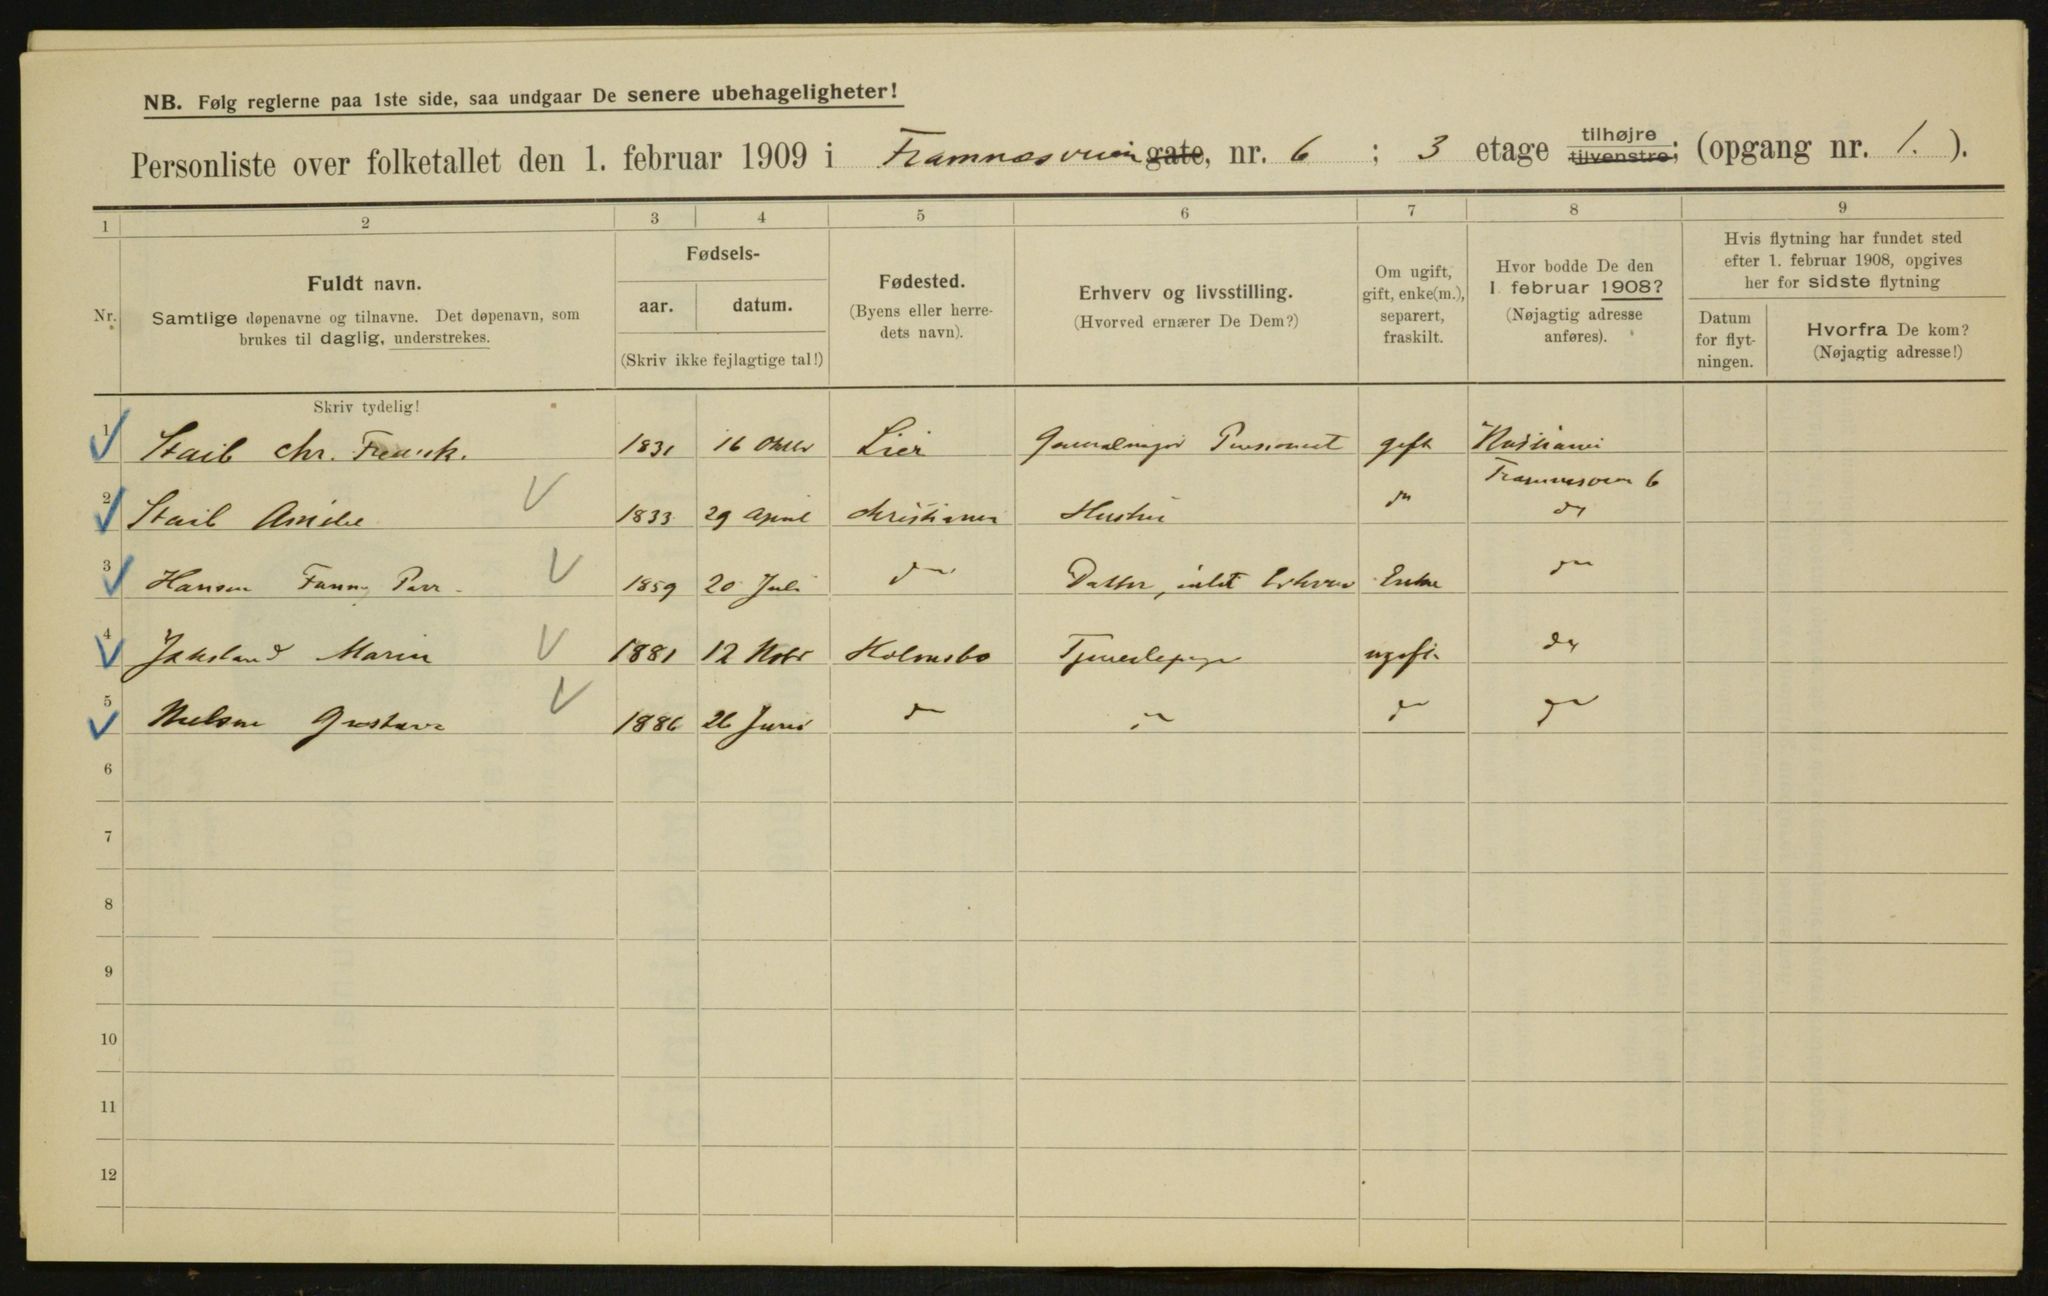 NB. Følg reglerne paa 1ste side, saa undgaar De senere ubehageligheter!
Personliste over folketallet den 1. februar 1909 i Framnæsveien gate, nr. 6 ; 3 etage tilhøjre tilvenstre; (opgang nr. 1. ).
1 2 3 4 5 6 7 8 9
Nr.
Fuldt navn.
Samtlige døpenavne og tilnavne. Det døpenavn, som
brukes til daglig, understrekes.
Skriv tydelig!
Fødsels-
aar. datum.
(Skriv ikke fejlagtige tal!)
Fødested.
(Byens eller herre-
dets navn).
Erhverv og livsstilling.
(Hvorved ernærer De Dem?)
Om ugift,
gift, enke(m.),
separert,
fraskilt.
Hvor bodde De den
1. februar 1908?
(Nøjagtig adresse
anføres).
Hvis flytning har fundet sted
efter 1. februar 1908, opgives
her for sidste flytning
Datum
for flyt-
ningen.
Hvorfra De kom?
(Nøjagtig adresse!)
1 Staib Chr. Fredrik. 1831 16 Oktbr Lier Generalmajor Pensionist gift Kristiania
Framnæsveien 6
2 Staib 1833 29 April Christiania Hustru do do
3 Hansen Fanny 1859 20 Juli do Datter, intet Erhverv Enke do
4 Marie 1881 12 Novbr Holmsbo Tjenestepige ugift do
5 Nielsen Gustava 1886 26 Juni do do do do
6
7
8
9
10
11
12